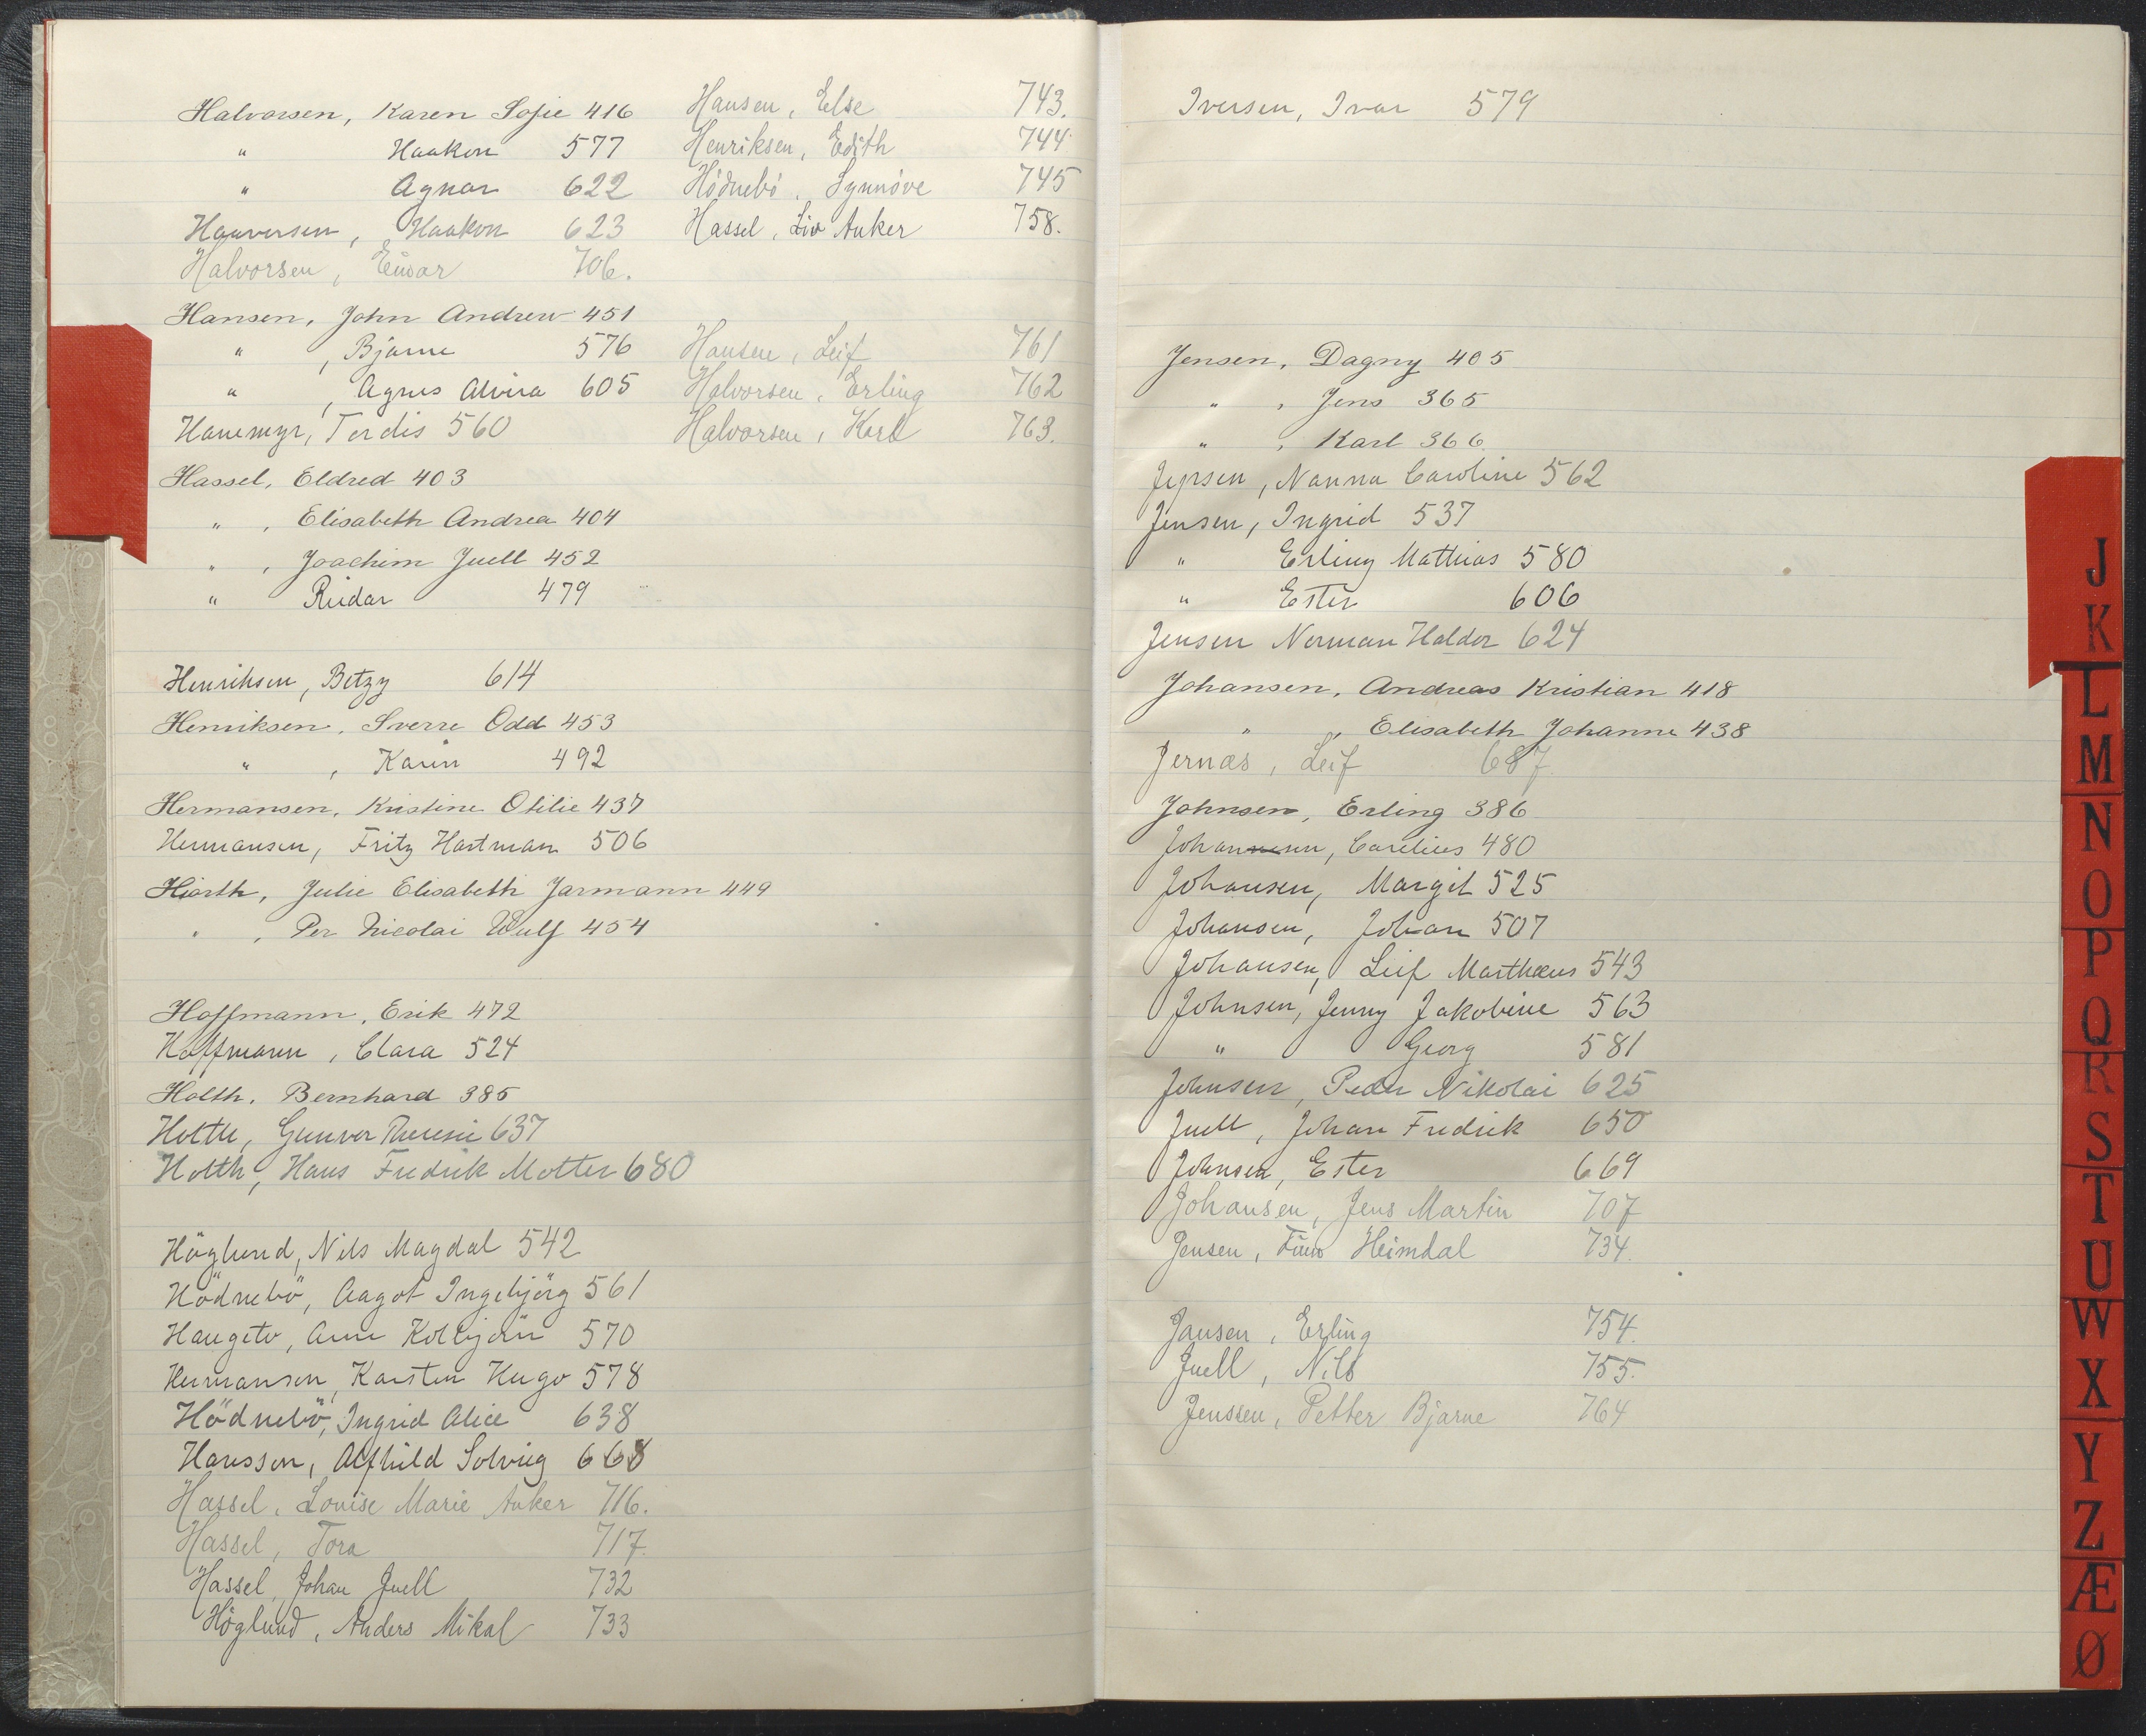 Halvorsen, Karen Sofie 416
" Haakon 577
" Agnar 622
Haaversen, Haakon 623
Halvorsen, Einar 706.
Hansen, John Andrew 451
" , Bjarne 576
" , Agnes Alvira 605
Hanemyr, Tordis 560
Hassel, Eldred 403
" , Elisabeth Andrea 404
" , Joachim Juell 452
" Reidar 479
Henriksen, Betzy 614
Henriksen, Sverre Odd 453
" , Karin 492
Hermansen, Kristine Otilie 437
Hermansen, Fritz Hartman 506
Hiorth, Julie Elisabeth Jarmann 449
" , Per Nicolai Wulf 454
Hoffmann, Erik 472
Hoffmann, Clara 524
Holth, Bernhard 385
Holth, Gunvor Theresie 637
Holth, Hans Fredrik Motter 680
Höglund, Nils Magdal 542
Hödnebö, Aagot Ingebjörg 561
Haugeto, Arne Kolbjörn 570
Hermansen, Karsten Hugo 578
Hödnebö, Ingrid Alice 638
Hansson, Alfhild Solveig 668
Hassel, Louise Marie Anker 716.
Hassel, Tora 717.
Hassel, Johan Juell 732
Höglund, Anders Mikal 733
Hansen, Else 743.
Henriksen, Edith 744
Hödnebö, Synnöve 745
Hassel, Liv Anker 758.
Hansen, Leif 761
Halvorsen, Erling 762
Halvorsen, Karl 763.
Iversen, Ivar 579
Jensen, Dagny 405
" , Jens 365
" , Karl 366
Jepsen, Nanna Caroline 562
Jensen, Ingrid 537
" Erling Mathias 580
" Ester 606
Jensen Norman Haldor 624
Johansen, Andreas Kristian 418
" , Elisabeth Johanne 438
Jernæs, Leif 687
Johnsen, Erling 386
Johannesen, Carelius 480
Johansen, Margit 525
Johansen, Johan 507
Johansen, Leif Marthæus 543
Johnsen, Jenny Jakobine 563
" Georg 581
Johnsen, Peder Nikolai 625
Juell, Johan Fredrik 650
Johnsen, Ester 669
Johansen, Jens Martin 707
Jensen, Finn Heimdal 734.
Jansen, Erling 754.
Juell, Nils 755.
Jenssen, Petter Bjarne 764
J
K
L
M
N
O
P
Q
R
S
T
U
W
X
Y
Z
Æ
Ø